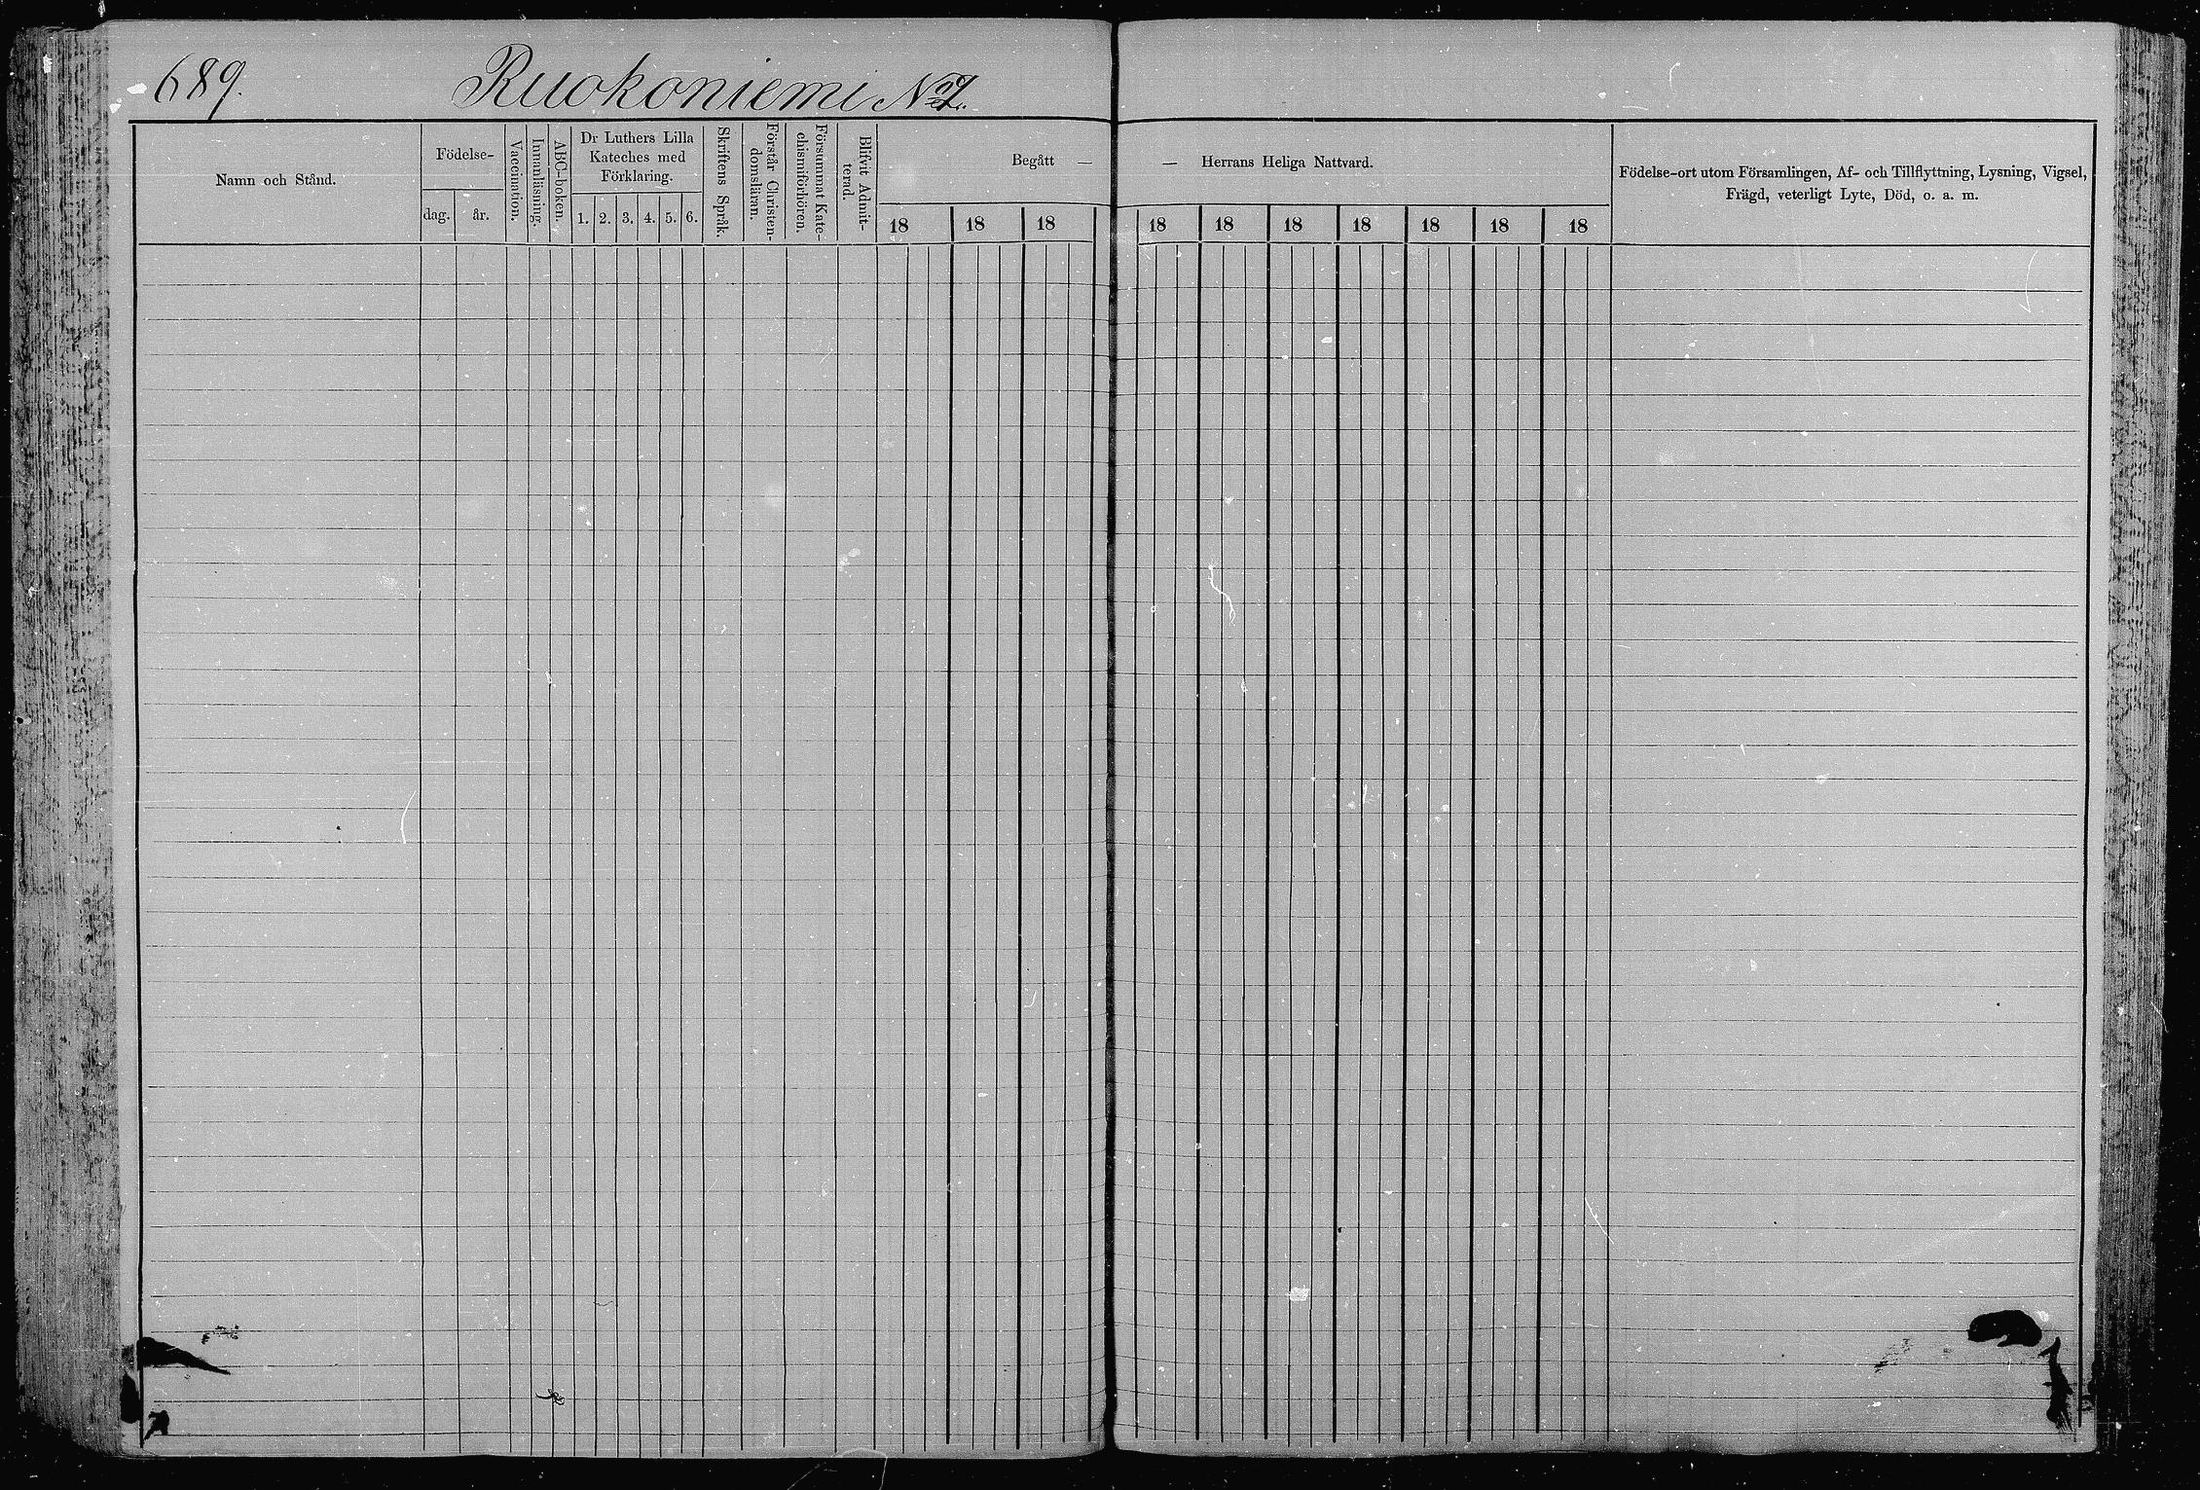 689. Ruokoniemi
Namn och Stånd.
Födelse-
dag. år.
Vaccination.
Innanläsning.
ABC-boken.
Dr Luthers Lilla
Kateches med
Förklaring.
1. 2. 3. 4. 5. 6.
Skriftens Språk.
Förstår Christen-
domsläran.
Försummat Kate-
chismiförhören.
Blifvit Admit-
terad.
Begått —
18 18 18
— Herrans Heliga Nattvard.
18 18 18 18 18 18 18
Födelse-ort utom Församlingen, Af- och Tillflyttning, Lysning, Vigsel,
Frägd, veterligt Lyte, Död, o. a. m.